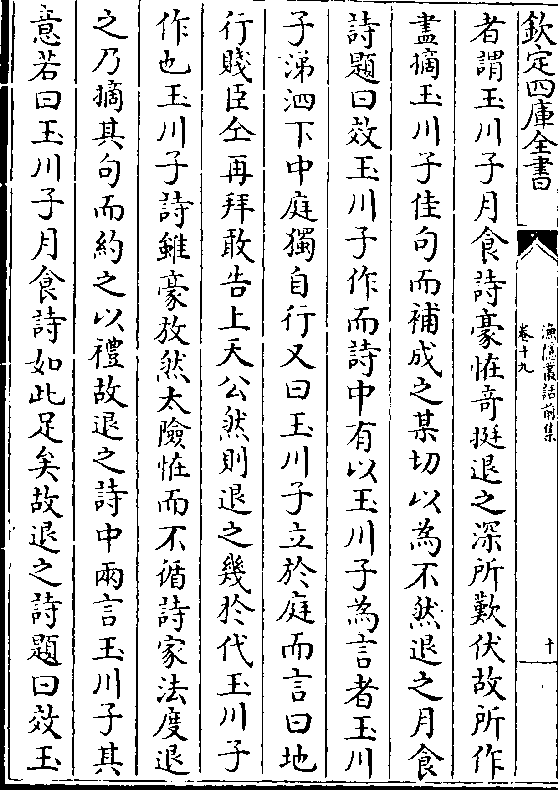 欽定四庫全書
漁隱叢話前集
卷十九
十
者謂玉川子月食詩豪怪奇挺退之深所歎伏故所作
盡摘玉川子佳句而補成之某切以為不然退之月食
詩題曰效玉川子作而詩中有以玉川子為言者玉川
子涕泗下中庭獨自行又曰玉川子立於庭而言曰地
行賤臣仝再拜敢告上天公然則退之幾於代玉川子
作也玉川子詩雖豪放然太險怪而不循詩家法度退
之乃摘其句而約之以禮故退之詩中兩言玉川子其
意若曰玉川子月食詩如此足矣故退之詩題曰效玉